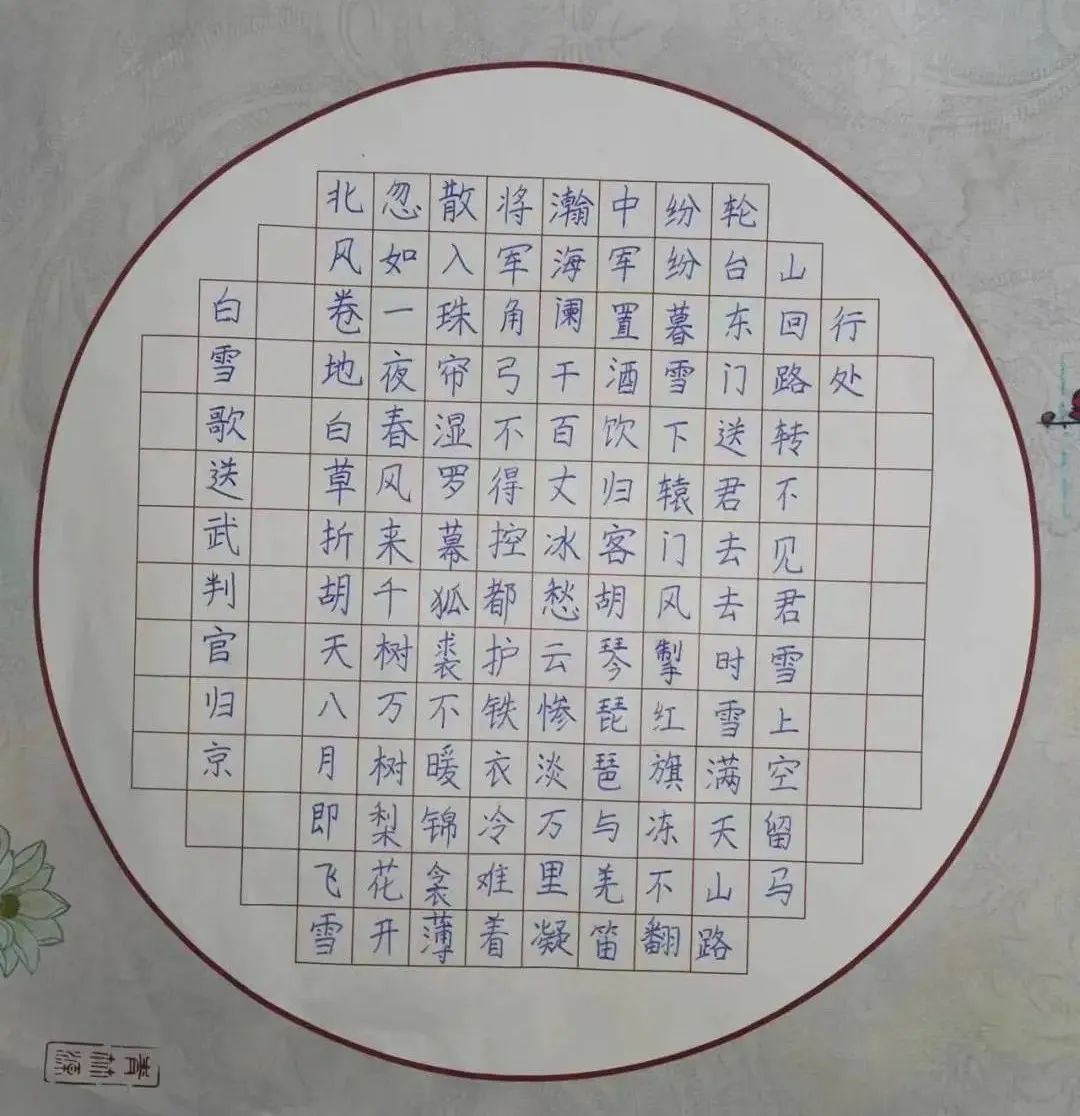 白雪歌送武判官归京
北风卷地白草折胡天八月即飞雪
忽如一夜春风来千树万树梨花开
散入珠帘湿罗幕狐裘不暖锦衾薄
将军角弓不得控都护铁衣冷难着
瀚海阑干百丈冰愁云惨淡万里凝
中军置酒饮归客胡琴琵琶与羌笛
纷纷暮雪下辕门风掣红旗冻不翻
轮台东门送君去去时雪满天山路
山回路转不见君雪上空留马
行处